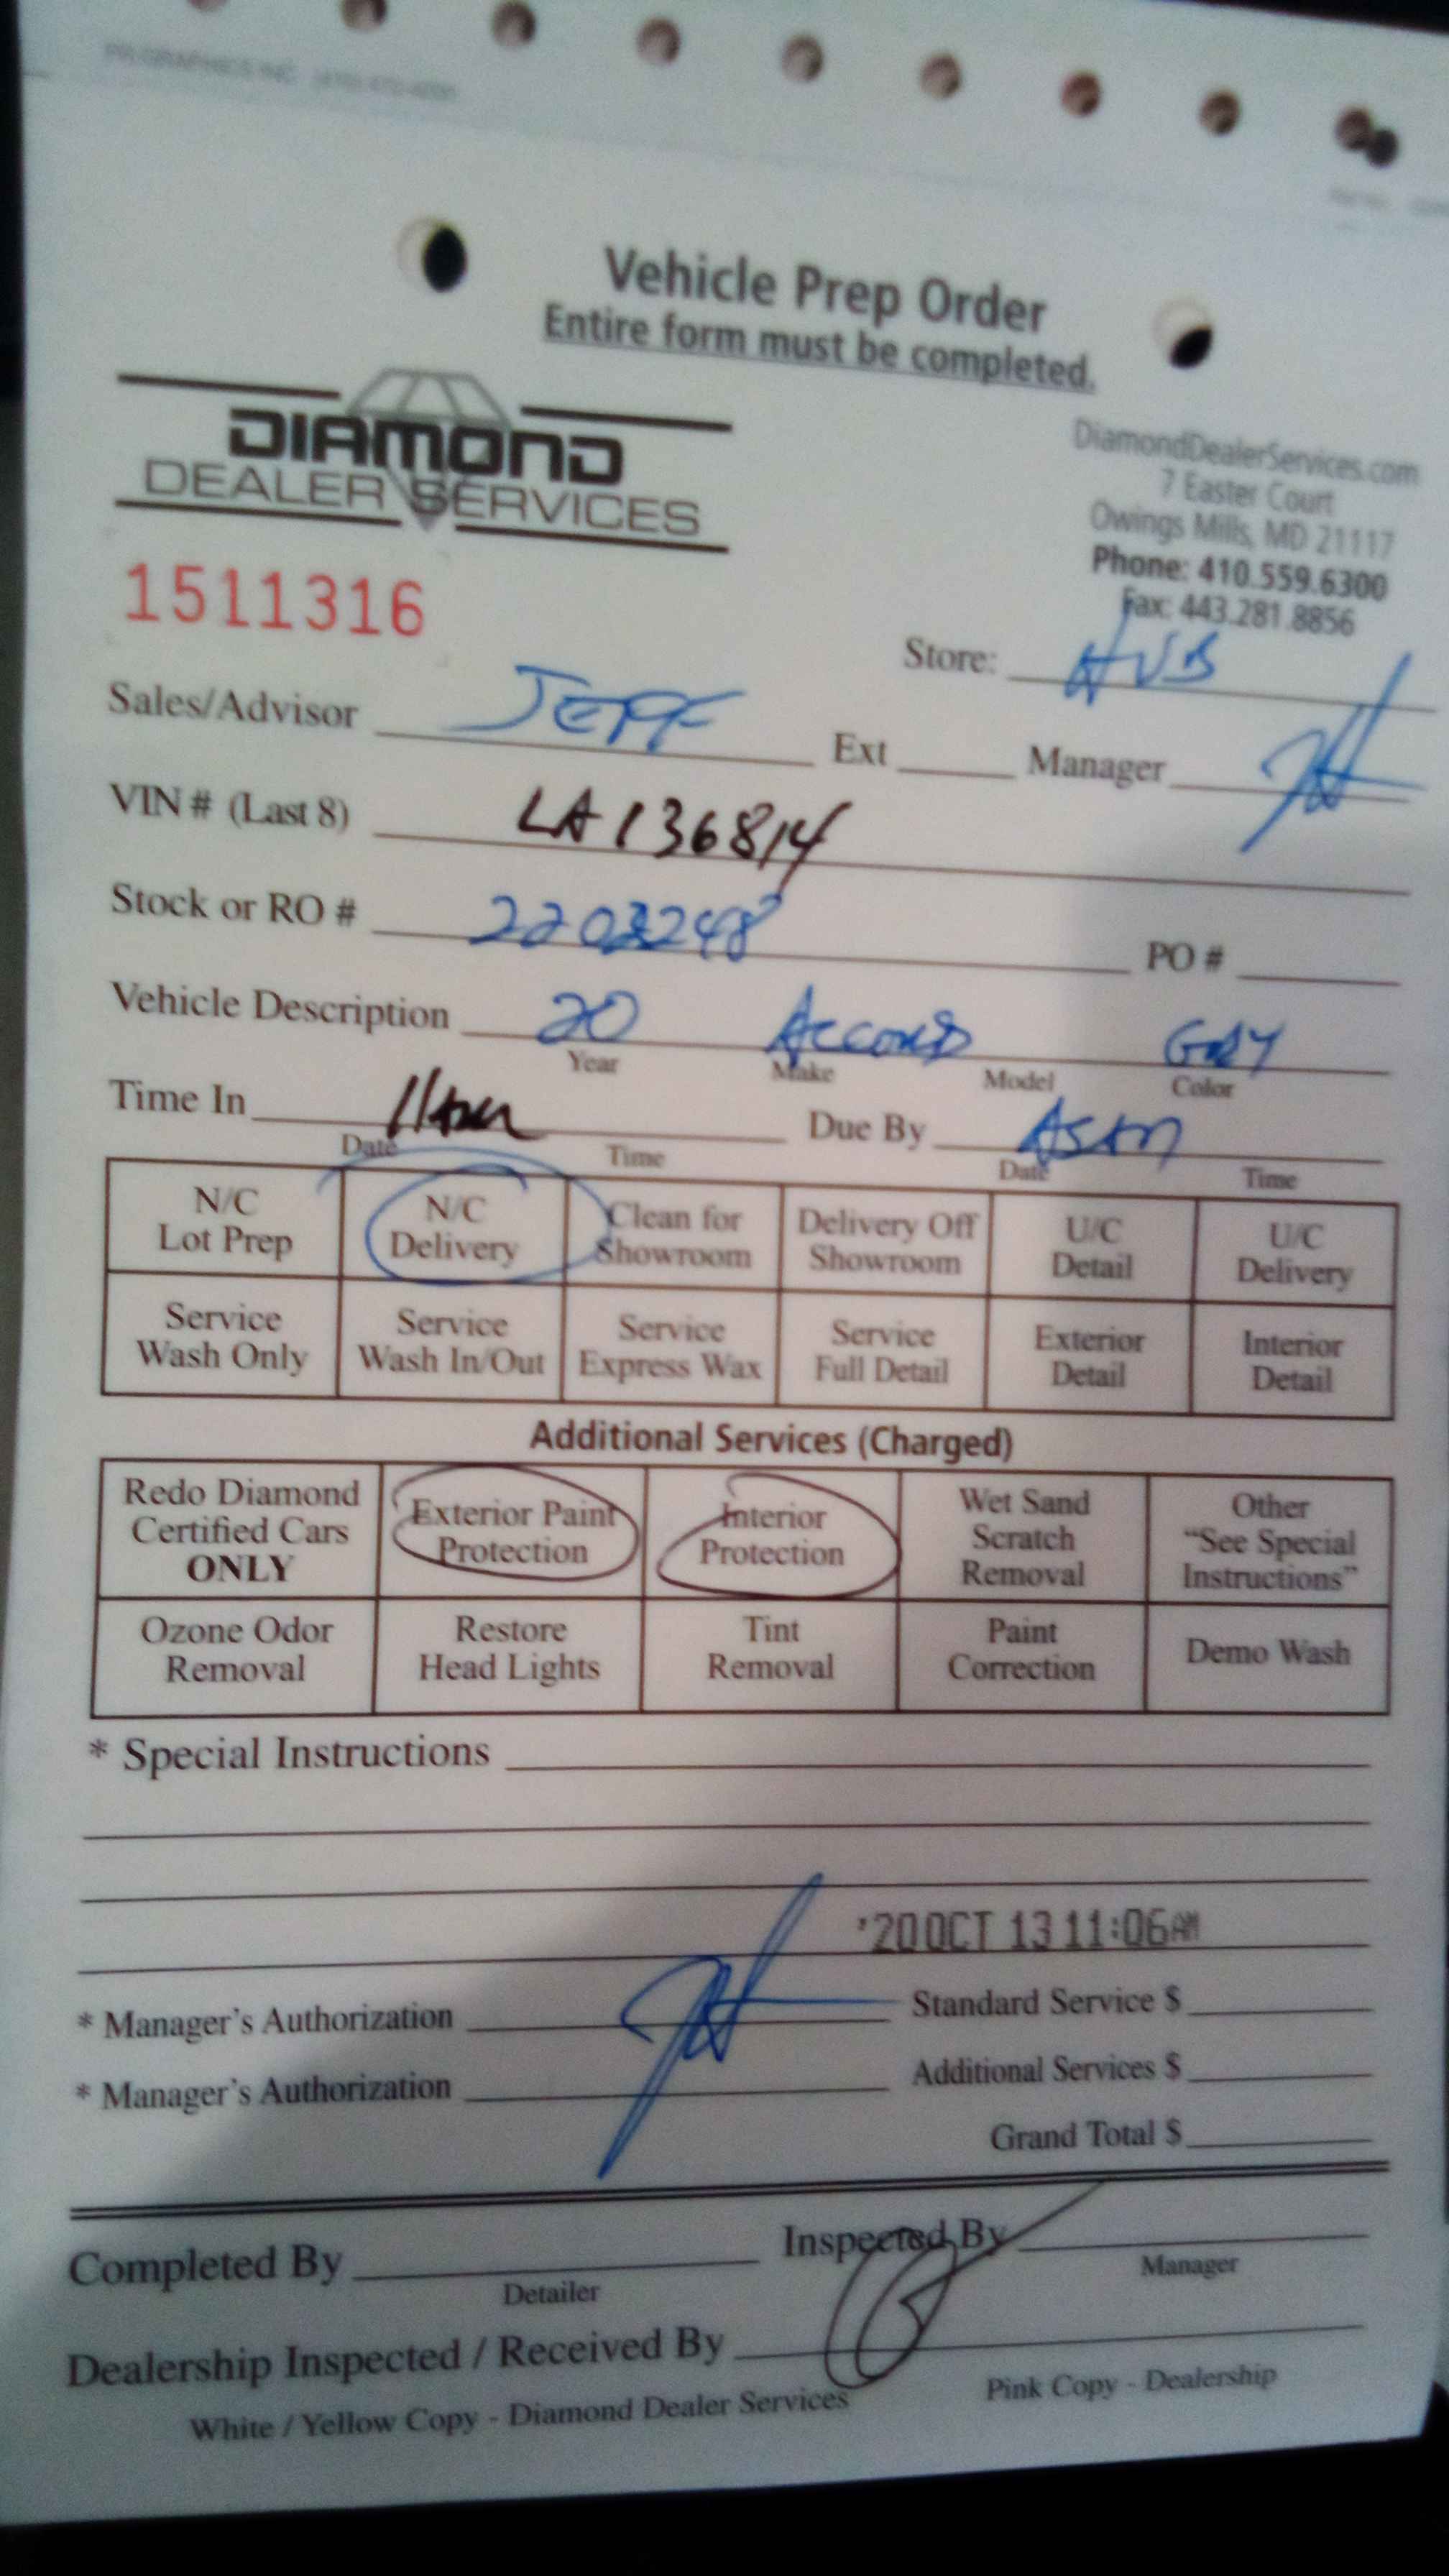 Vehicle Prep Order
Entire form must be completed.
DIAMOND
DEALER SERVICES
DiamondDealerServices.com
7 Easter Court
Owings Mills, MD 21117
Phone: 410.559.6300
Fax: 443.281.8856
1511316
Store:
Sales/Advisor JEFF Ext Manager
VIN # (Last 8) LA136814
Stock or RO # 2203248 PO #
Vehicle Description 20 Accord GRAY
Year Make Model Color
Time In 11am Due By ASAP
Date Time Date Time
N/C Lot Prep N/C Delivery Clean for Showroom Delivery Off Showroom U/C Detail U/C Delivery
Service Wash Only Service Wash In/Out Service Express Wax Service Full Detail Exterior Detail Interior Detail
Additional Services (Charged)
Redo Diamond Certified Cars ONLY Exterior Paint Protection Interior Protection Wet Sand Scratch Removal Other "See Special Instructions"
Ozone Odor Removal Restore Head Lights Tint Removal Paint Correction Demo Wash
* Special Instructions
'20 OCT 13 11:06AM
* Manager's Authorization Standard Service $
* Manager's Authorization Additional Services $
Grand Total $
Completed By Inspected By
Detailer Manager
Dealership Inspected / Received By
White / Yellow Copy - Diamond Dealer Services Pink Copy - Dealership